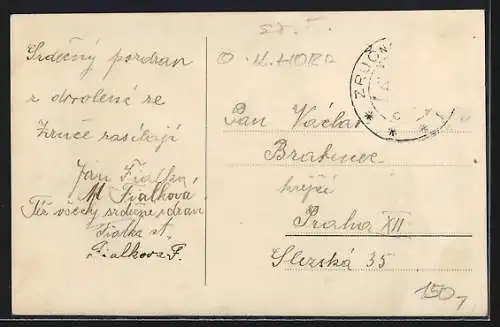 Srdečný pozdrav
z dovolené ze
Zruče zasílají
Jan Fialka
M Fialková
Též všecky srdečně zdraví
Fialka st.
Fialkova F.
O. K. HORA
ZRUČ
Pan Václav
Bratinec
krejčí
Praha XII
Slezská 35
150